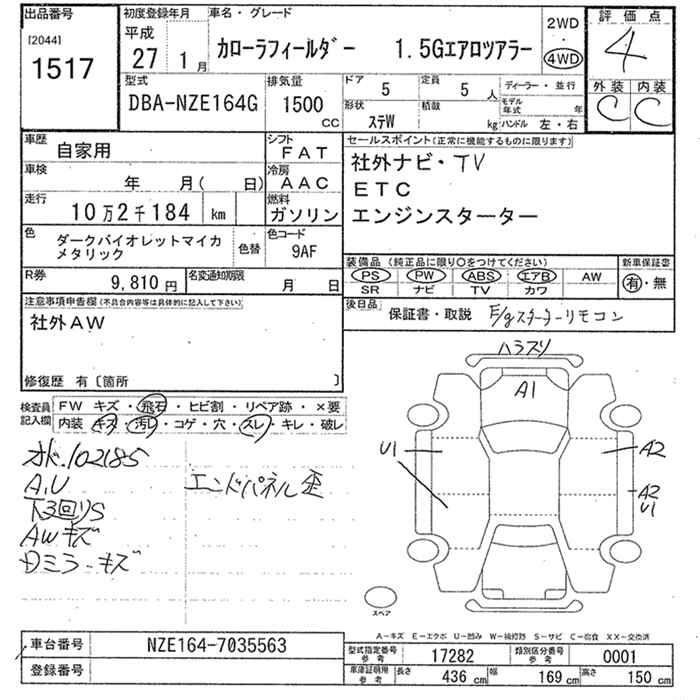 出品番号 初度登録年月 車名・グレード 2WD 評価点
[2044] 平成
1517 27 1月 カローラフィールダー 1.5Gエアロツアラー 4WD 4
型式 排気量 ドア 5 定員 5人 ディーラー・並行 外装 内装
DBA-NZE164G 1500 CC 形状 ステW 積載 kg モデル年式 年 C C
ハンドル 左・右
車歴 自家用 シフト FAT セールスポイント(正常に機能するものに限ります)
車検 年 月( 日) 冷房 AAC 社外ナビ・TV
走行 10万2千184 km 燃料 ガソリン ETC
エンジンスターター
色 ダークバイオレットマイカメタリック 色替 色コード 9AF
装備品(純正品に限り○をつけてください) 新車保証書
R券 9,810円 名変通知期限 月 日 PS PW ABS エアB AW 有・無
SR ナビ TV カワ
注意事項申告欄(不具合内容等は具体的に記入して下さい) 後日品 保証書・取説 E/gスターターリモコン
社外AW
修復歴 有〔箇所 〕
検査員記入欄 FW キズ・飛石・ヒビ割・リペア跡・×要
内装 キズ・汚レ・コゲ・穴・スレ・キレ・破レ
ハラスリ
A1
オド.102185
A,U エンドパネル歪
下3回りS
AWキズ
Dミラーキズ
U1
A2
A2
U1
スペア
A-キズ E-エクボ U-凹み W-補修跡 S-サビ C-腐食 XX-交換済
車台番号 NZE164-7035563 型式指定番号 参考 17282 類別区分番号 参考 0001
登録番号 車庫証明用 参考 長さ 436 cm 幅 169 cm 高さ 150 cm